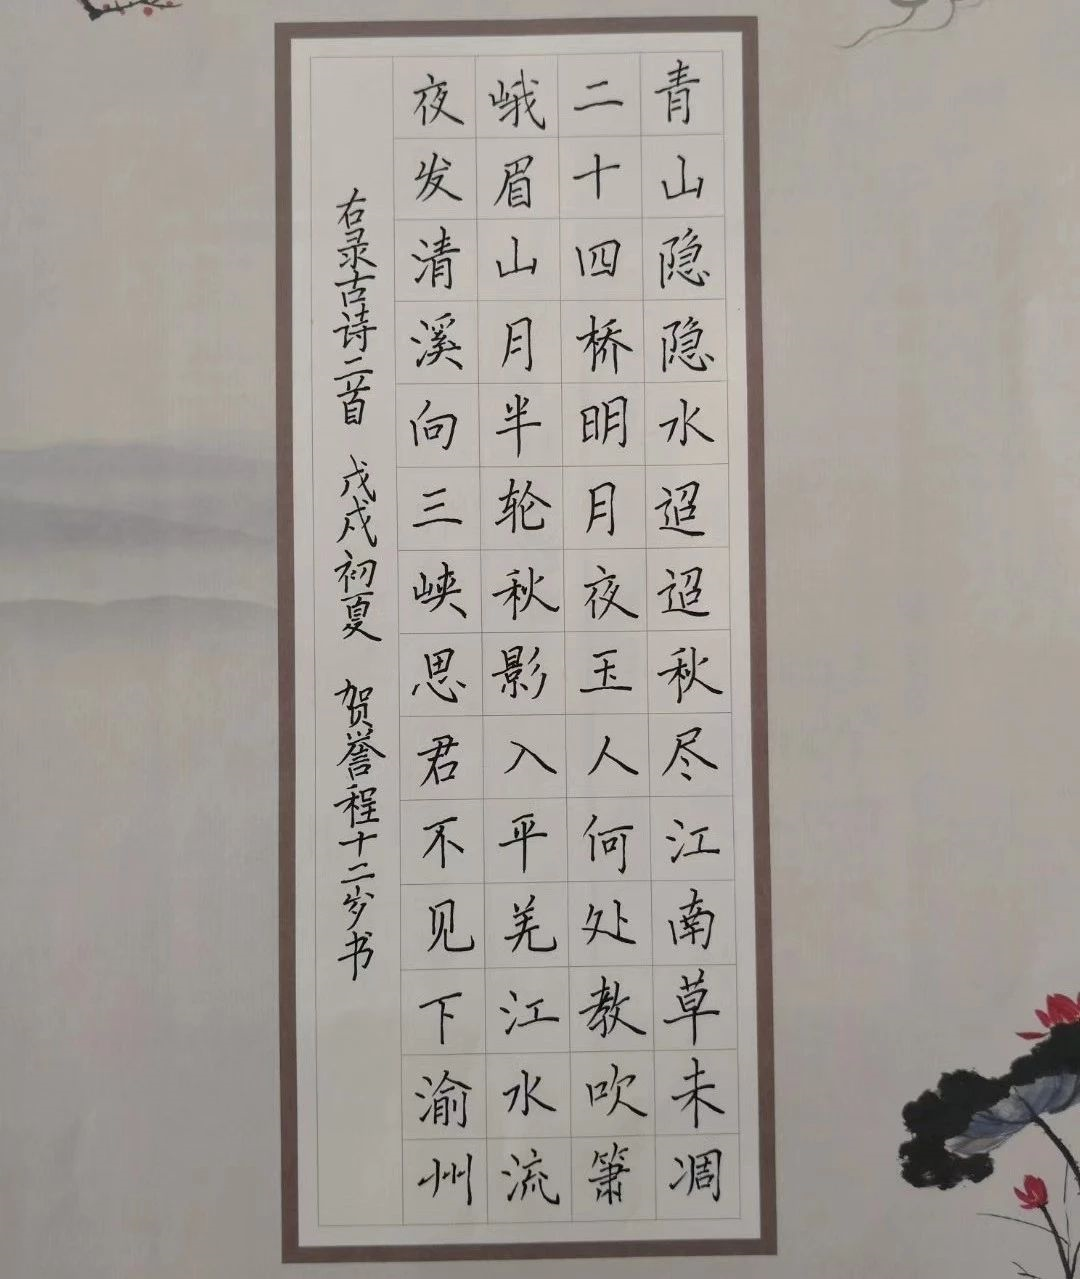 青山隐隐水迢迢秋尽江南草未凋
二十四桥明月夜玉人何处教吹箫
峨眉山月半轮秋影入平羌江水流
夜发清溪向三峡思君不见下渝州
右录古诗二首 戊戌初夏 贺誉程十二岁书